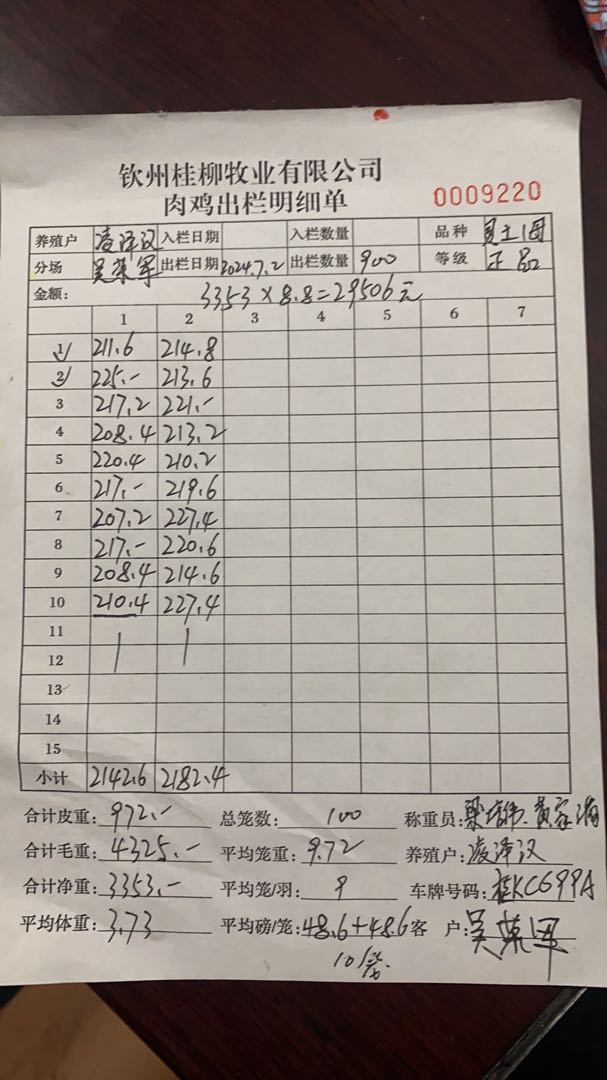 钦州桂柳牧业有限公司
肉鸡出栏明细单
0009220
养殖户 凌泽汉 入栏日期 入栏数量 品种
分场 吴荣军 出栏日期 2024.7.2 出栏数量 900 等级 正品
金额: 3353×8.8=29506元
1 2 3 4 5 6 7
1) 211.6 214.8
2) 225.- 213.6
3 217.2 221.-
4 208.4 213.2
5 220.4 210.2
6 217.- 219.6
7 207.2 227.4
8 217.- 220.6
9 208.4 214.6
10 210.4 227.4
11
12
13
14
15
小计 2142.6 2182.4
合计皮重: 972.- 总笼数: 100 称重员:
合计毛重: 4325.- 平均笼重: 9.72 养殖户: 凌泽汉
合计净重: 3353.- 平均笼/羽: 9 车牌号码: 桂KC699A
平均体重: 3.73 平均磅/笼: 48.6+48.6 客 户: 吴荣军
10/笼.